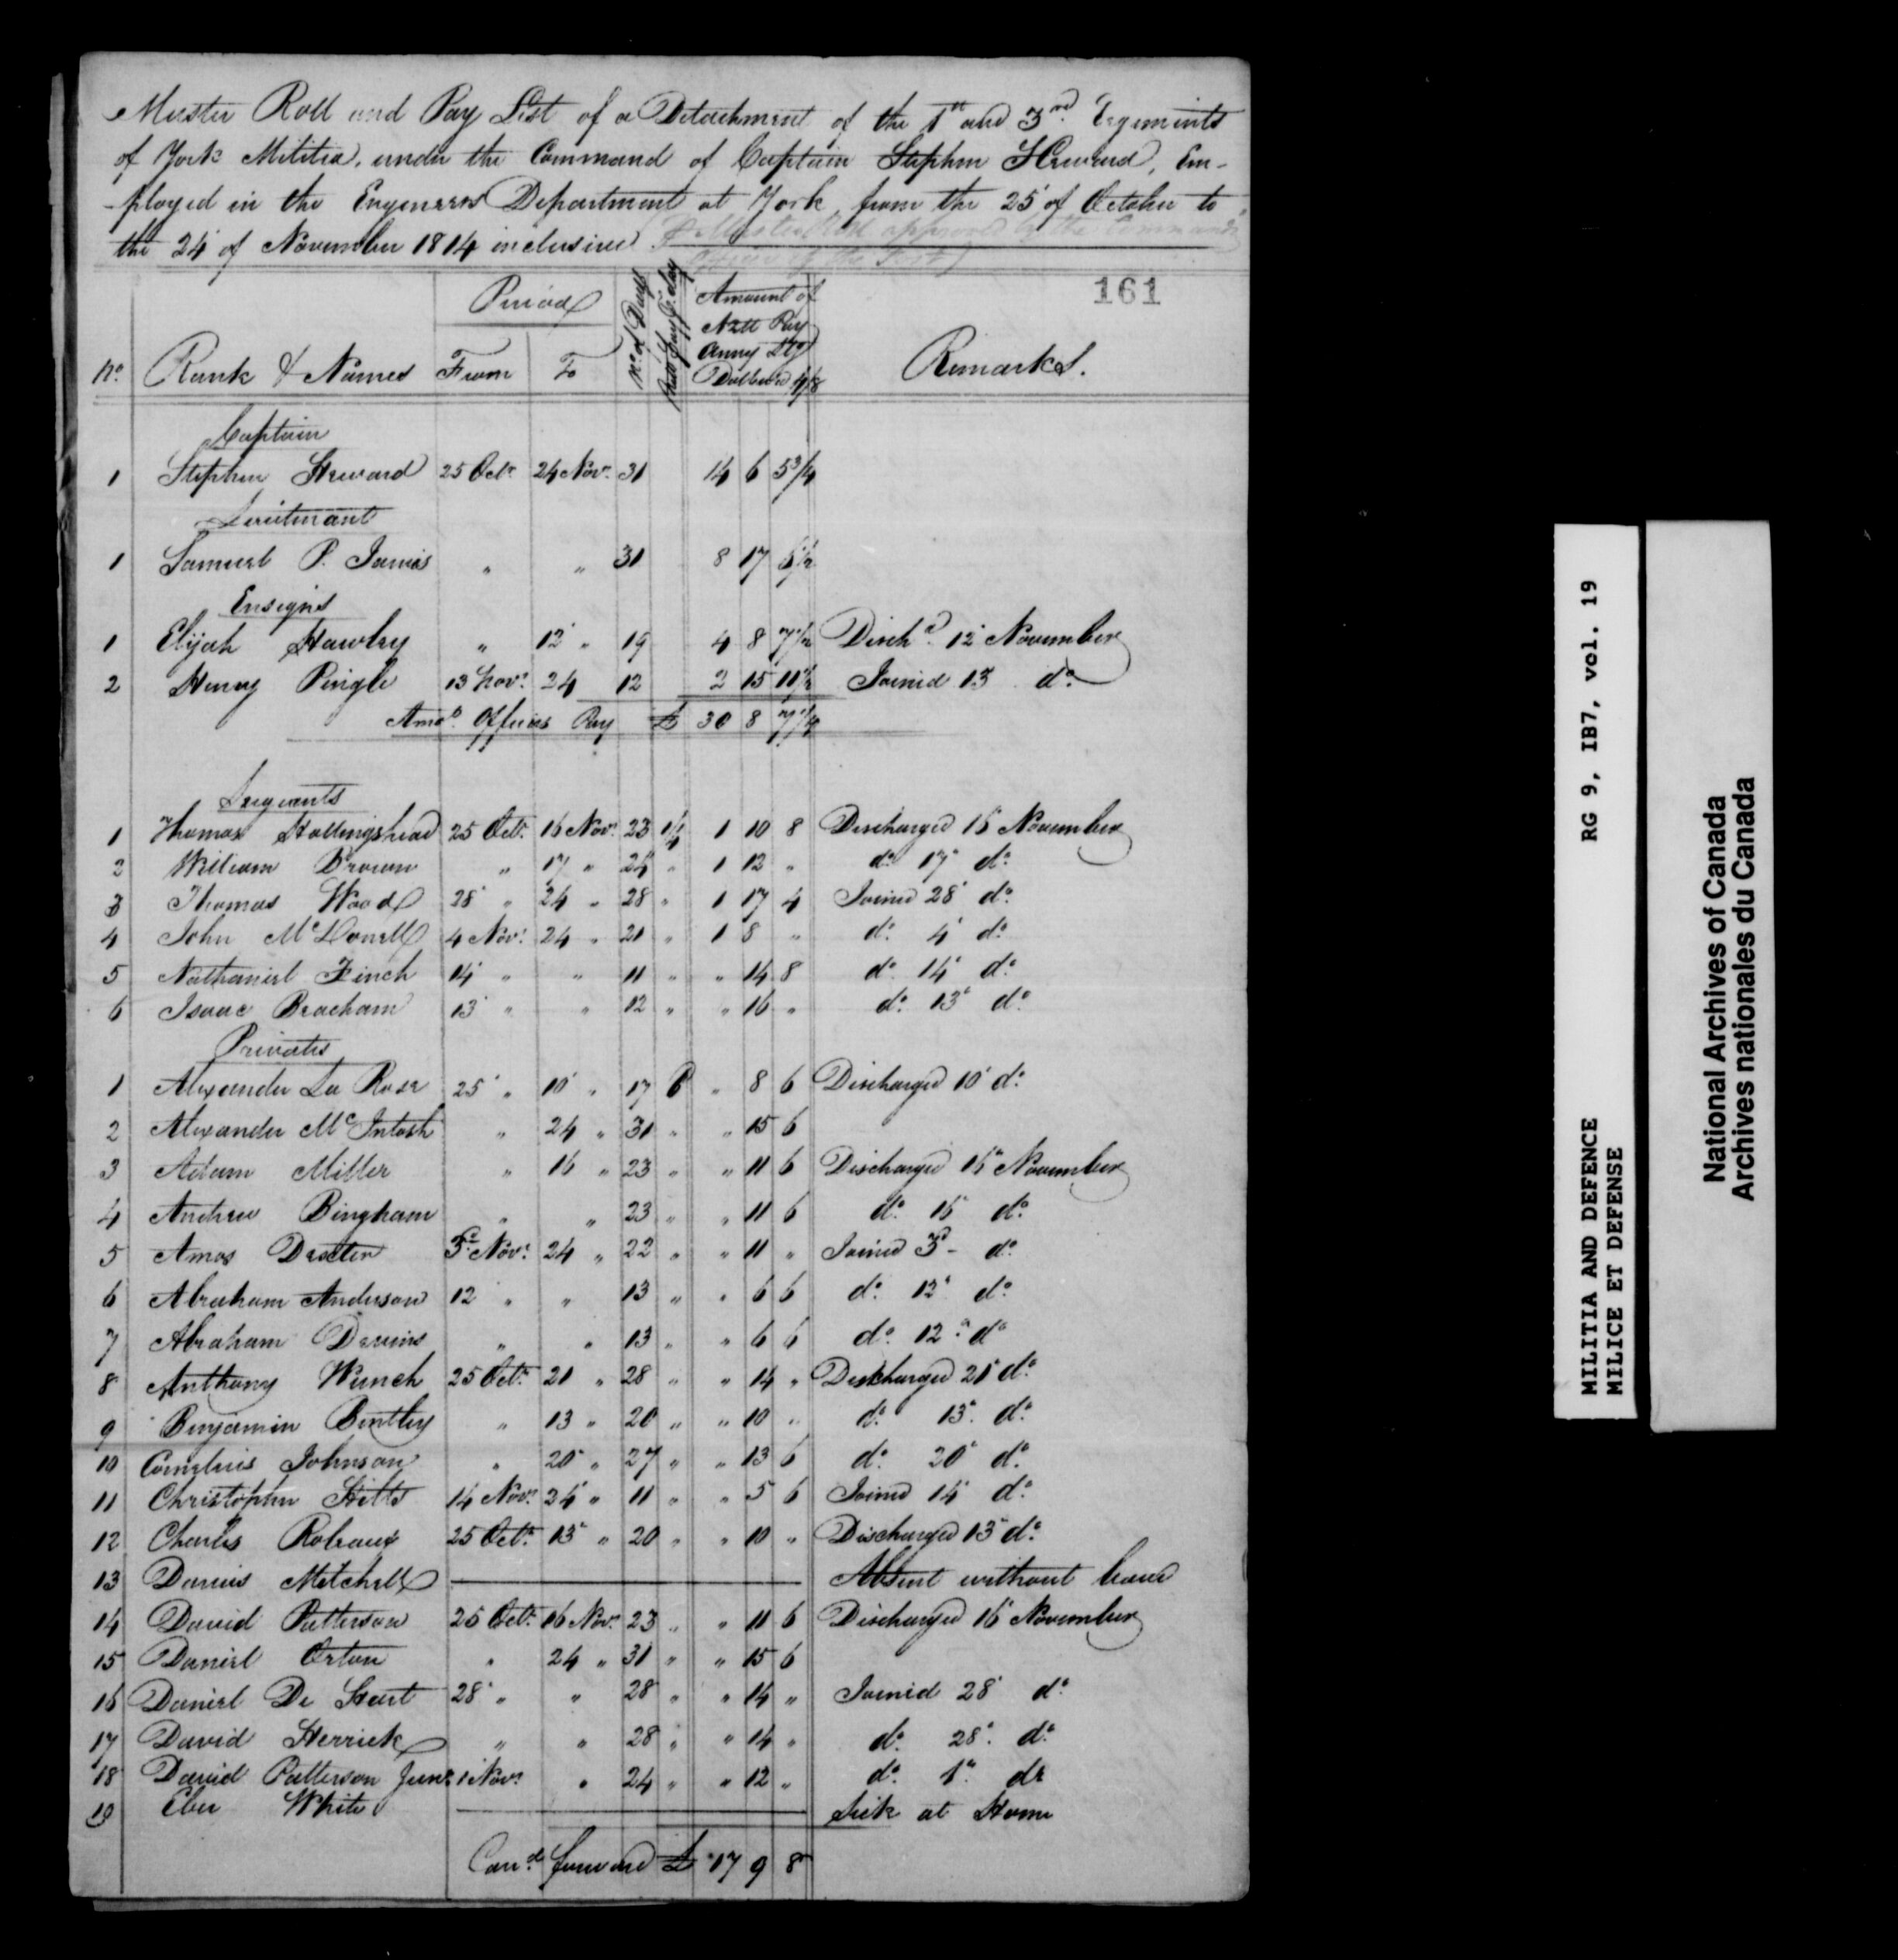 Muster Roll and Pay List of a Detachment of the 1st and 3rd Regiments
of York Militia, under the Command of Captain Stephen Heward, Em-
-ployed in the Engineers Department at York, from the 25th of October to
the 24th of November 1814 inclusive.
161
No. Rank & Names Period From To No. of Days Rate pr day Amount of Nett Pay Army Stg Dollar @ 4/8 Remarks.
Captain
1 Stephen Heward 25 Octr. 24 Novr. 31 14 6 5 3/4
Lieutenant
1 Samuel P. Jarvis " " 31 8 17 6 1/2
Ensigns
1 Elijah Hawley " 12 " 19 4 8 7 1/2 Dischd. 12 November
2 Henry Pingle 13 Novr. 24 12 2 15 11 1/2 Joined 13 do.
Amot. Officers Pay £ 30 8 7 1/4
Sergeants
1 Thomas Hollingshead 25 Octr. 16 Novr. 23 1/4 1 10 8 Discharged 16 November
2 William Brown " 17 " 24 " 1 12 " do. 17 do.
3 Thomas Wood 28 " 24 " 28 " 1 17 4 Joined 28 do.
4 John McDonell 4 Novr. 24 " 21 " 1 8 " do. 4 do.
5 Nathaniel Finch 14 " " 11 " " 14 8 do. 14 do.
6 Isaac Beacham 13 " " 12 " " 16 " do. 13 do.
Privates
1 Alexander La Rose 25 " 10 " 17 6 " 8 6 Discharged 10 do.
2 Alexander McIntosh " 24 " 31 " " 15 6
3 Adam Miller " 16 " 23 " " 11 6 Discharged 16 November
4 Andrew Bingham " " 23 " " 11 6 do. 16 do.
5 Amos Dexter 3d. Novr. 24 " 22 " " 11 " Joined 3d - do.
6 Abraham Anderson 12 " " 13 " " 6 6 do. 12 do.
7 Abraham Devins " " 13 " " 6 6 do. 12 do.
8 Anthony Wunch 25 Octr. 21 " 28 " " 14 " Discharged 21 do.
9 Benjamin Bentley " 13 " 20 " " 10 " do. 13 do.
10 Cornelius Johnson " 20 " 27 " " 13 6 do. 20 do.
11 Christopher Hilts 14 Novr. 24 " 11 " " 5 6 Joined 14 do.
12 Charles Robeaux 25 Octr. 13 " 20 " " 10 " Discharged 13 do.
13 Darius Mitchell Absent without leave
14 David Patterson 25 Octr. 16 Novr. 23 " " 11 6 Discharged 16 November
15 Daniel Orton " 24 " 31 " " 15 6
16 Daniel De Hart 28 " " 28 " " 14 " Joined 28 do.
17 David Herrick " " 28 " " 14 " do. 28 do.
18 David Patterson Junr. 1 Novr. " 24 " " 12 " do. 1st do
19 Eber White Sick at Home
Card. forward £ 17 9 8
MILITIA AND DEFENCE RG 9, IB7, vol. 19
MILICE ET DEFENSE
National Archives of Canada
Archives nationales du Canada